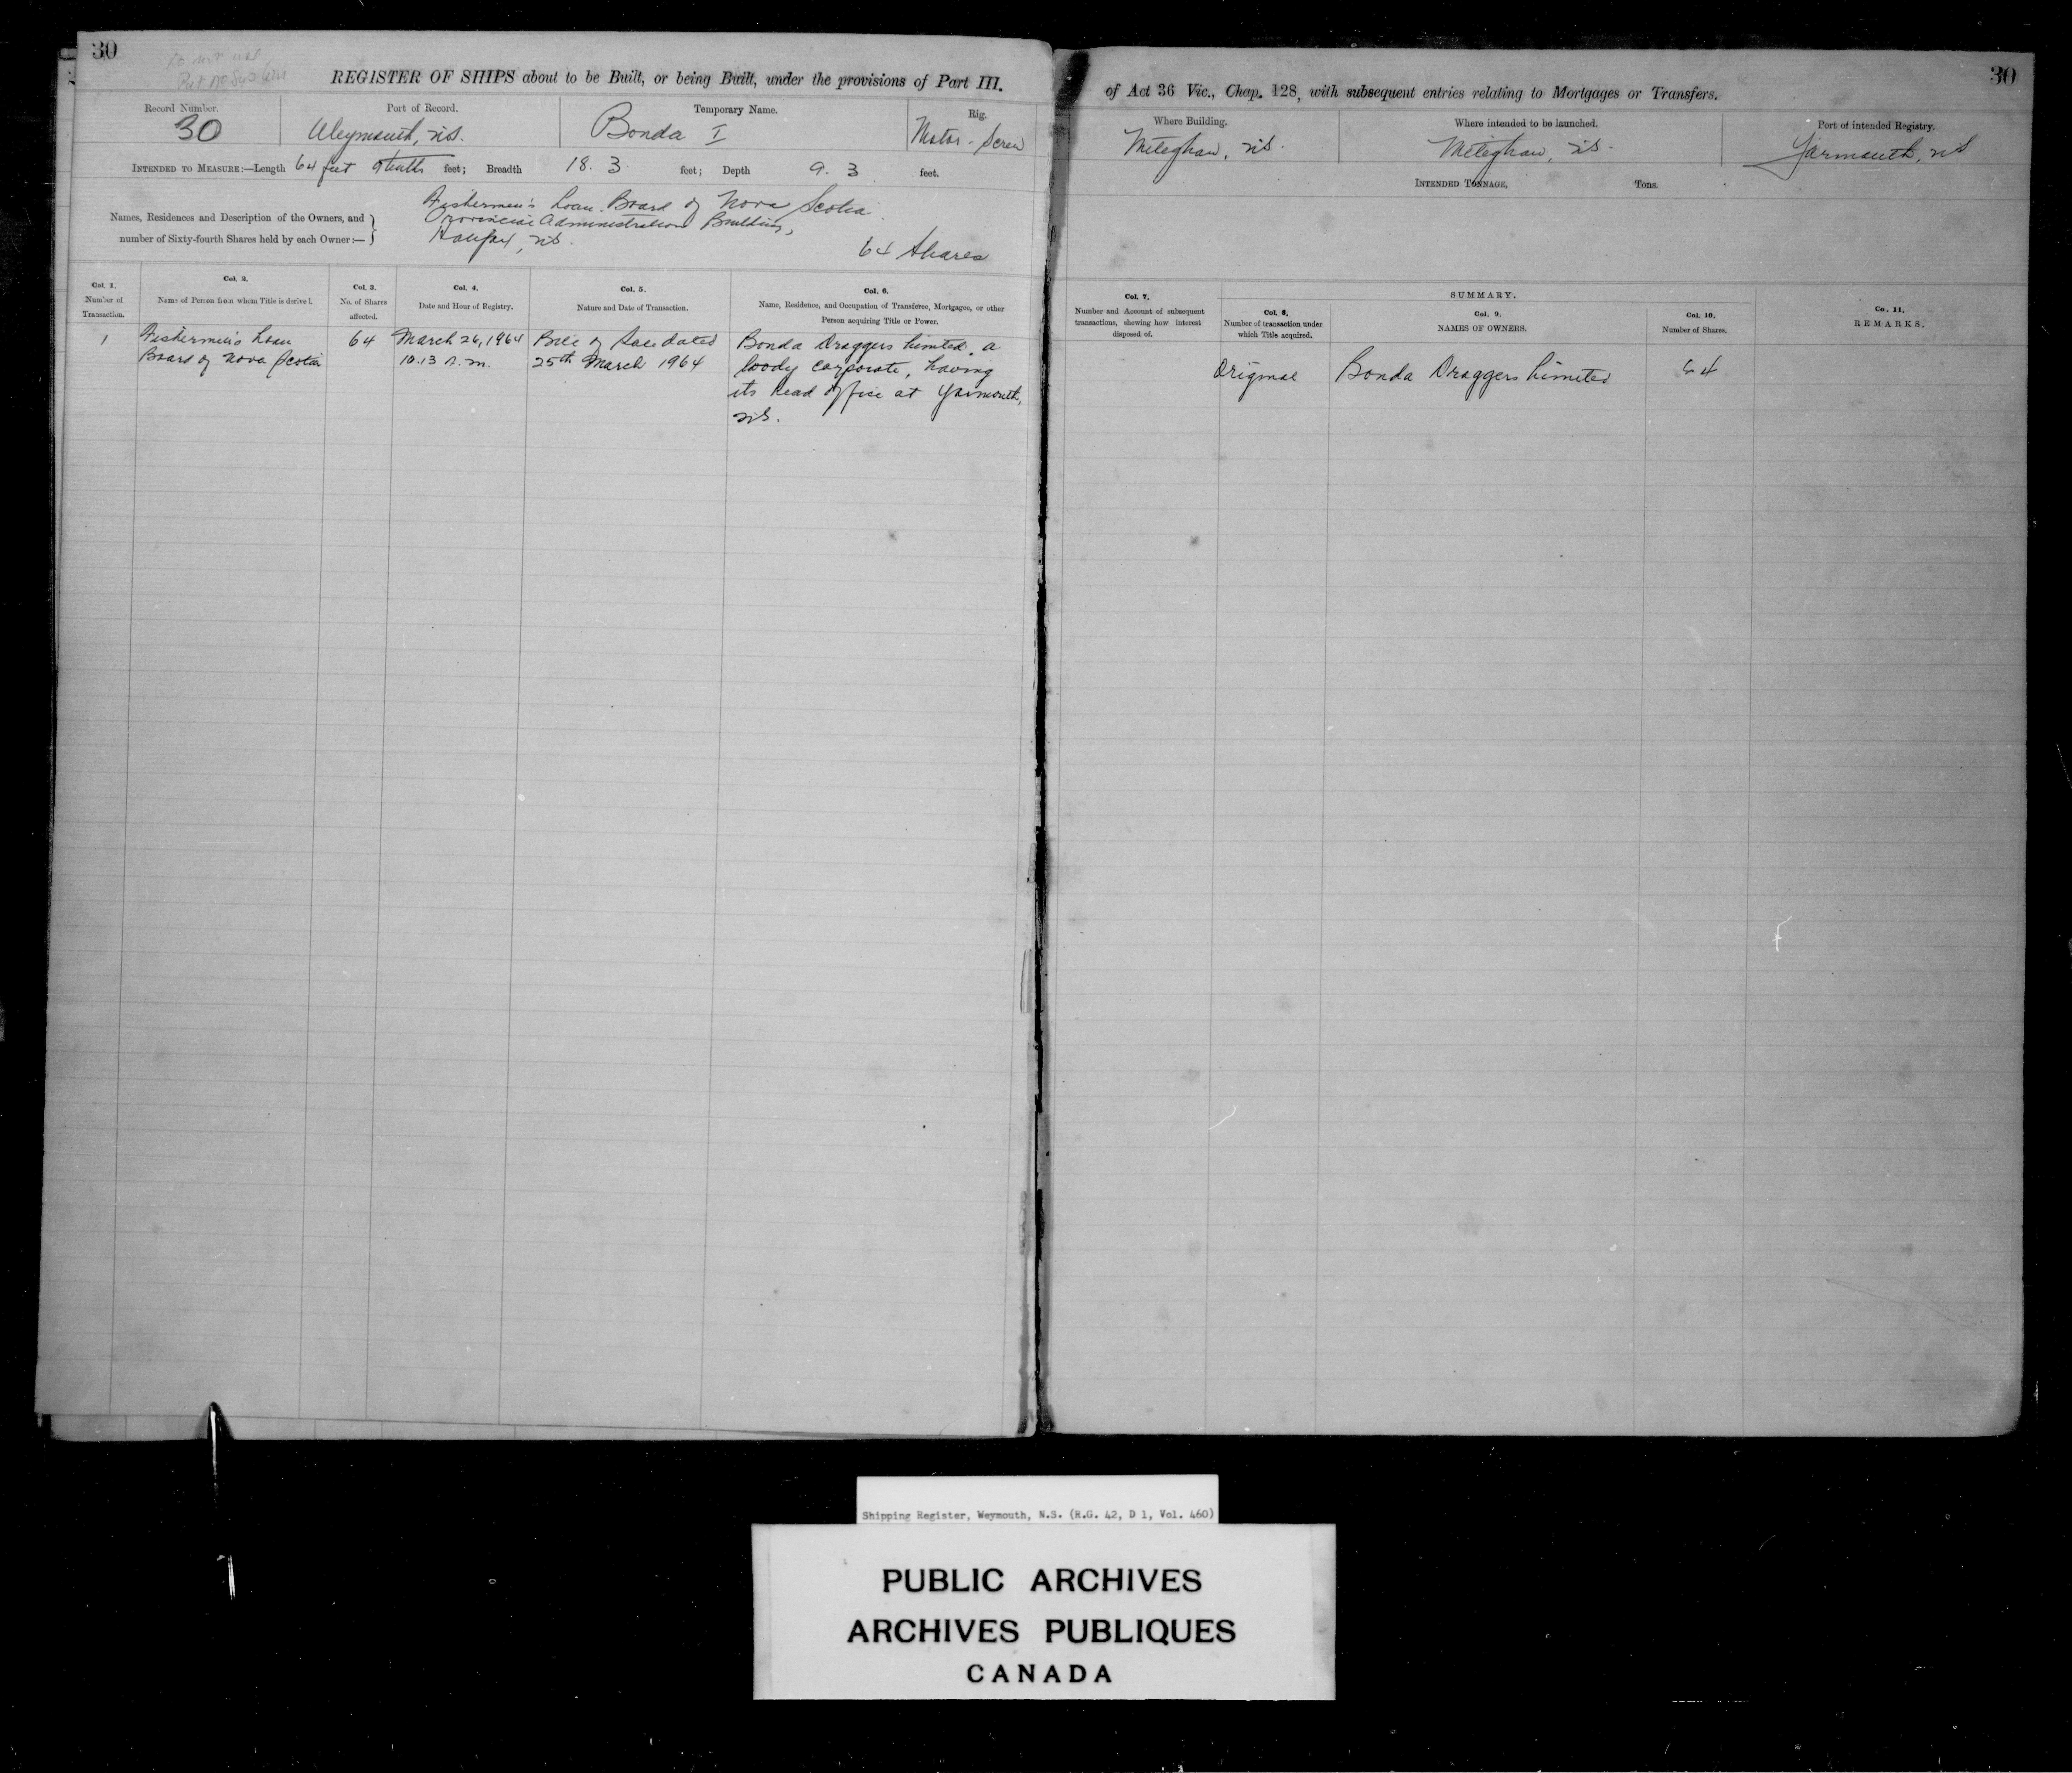 30
30
REGISTER OF SHIPS about to be Built, or being Built, under the provisions of Part III.
of Act 36 Vic., Chap. 128, with subsequent entries relating to Mortgages or Transfers.
Record Number.
30
Port of Record.
Weymouth, N.S.
Temporary Name.
Bonda I
Rig.
Motor-Screw
Where Building.
Meteghan, N.S.
Where intended to be launched.
Meteghan, N.S.
Port of intended Registry.
Yarmouth, N.S
INTENDED TO MEASURE:—Length 64 feet tenths feet; Breadth 18.3 feet; Depth 9.3 feet.
INTENDED TONNAGE, Tons.
Names, Residences and Description of the Owners, and
number of Sixty-fourth Shares held by each Owner:—
Fishermen's Loan Board of Nova Scotia
Provincial Administration Building,
Halifax, N.S.
64 Shares
Col. 1.
Number of
Transaction.
Col. 2.
Name of Person from whom Title is derived.
Col. 3.
No. of Shares
affected.
Col. 4.
Date and Hour of Registry.
Col. 5.
Nature and Date of Transaction.
Col. 6.
Name, Residence, and Occupation of Transferee, Mortgagee, or other
Person acquiring Title or Power.
Col. 7.
Number and Amount of subsequent
transactions, shewing how interest
disposed of.
SUMMARY.
Col. 8.
Number of transaction under
which Title acquired.
Col. 9.
NAMES OF OWNERS.
Col. 10.
Number of Shares.
Co. 11,
REMARKS.
1
Fishermen's Loan
Board of Nova Scotia
64
March 26, 1964
10.13 A.M.
Bill of Sale dated
25th March 1964
Bonda Draggers Limited, a
body corporate, having
its head office at Yarmouth,
N.S.
Original
Bonda Draggers Limited
64
Shipping Register, Weymouth, N.S. (R.G. 42, D 1, Vol. 460)
PUBLIC ARCHIVES
ARCHIVES PUBLIQUES
CANADA